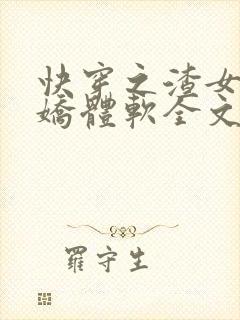 快穿之渣女
嬌體軟全文
羅守生